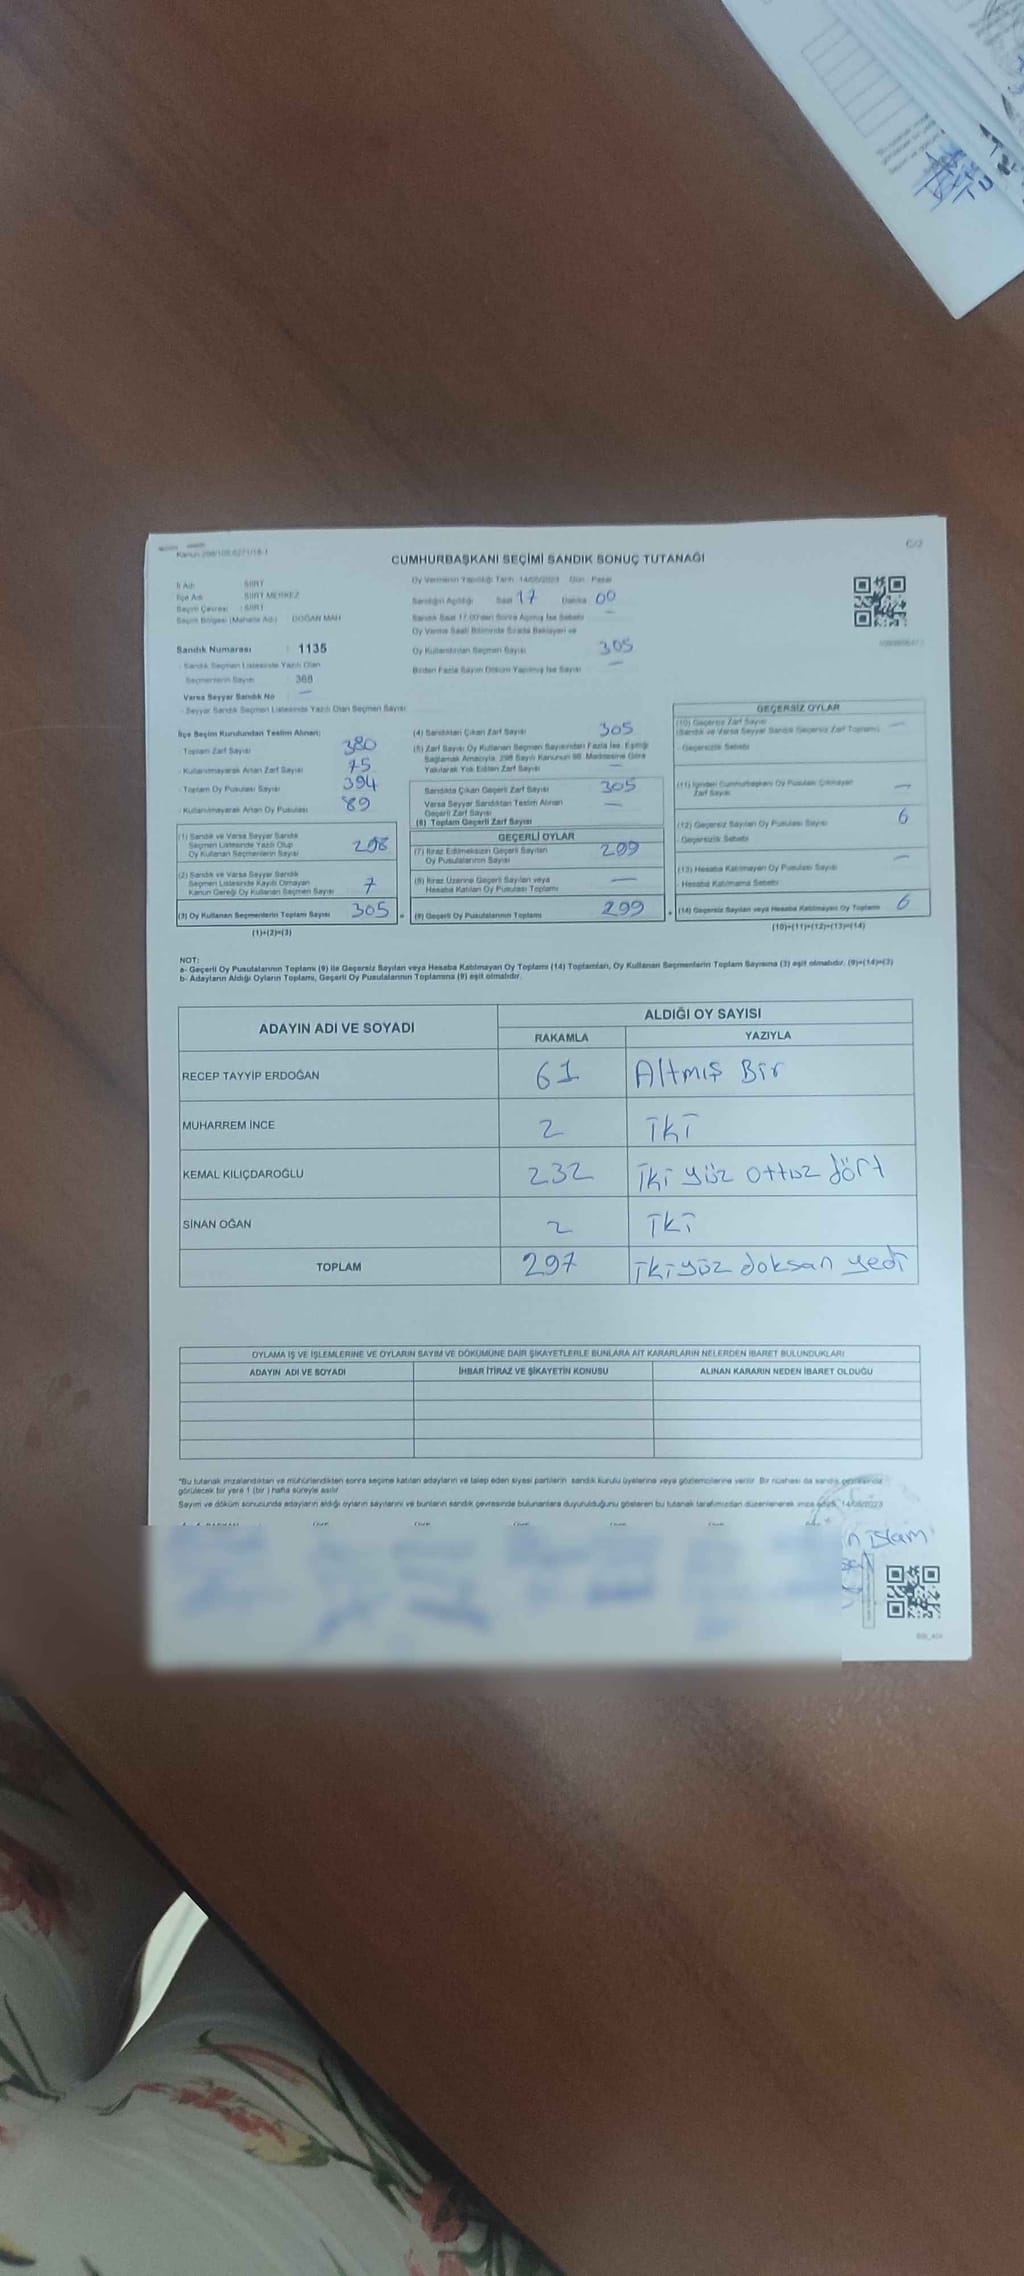 CUMHURBAŞKANI SEÇİMİ SANDIK SONUÇ TUTANAĞI
C/2
İl Adı : SİİRT
İlçe Adı : SİİRT MERKEZ
Seçim Çevresi : SİİRT
Seçim Bölgesi (Mahalle Adı) : DOĞAN MAH
Oy Vermenin Yapıldığı Tarih : 14/05/2023 Gün : Pazar
Sandığın Açıldığı Saat 17 Dakika 00
Sandık Saat 17:00'den Sonra Açılmış İse Sebebi
Oy Verme Saati Bitiminde Sırada Bekleyen ve
Oy Kullandırılan Seçmen Sayısı 305
Birden Fazla Sayım Döküm Yapılmış İse Sayısı —
Sandık Numarası : 1135
- Sandık Seçmen Listesinde Yazılı Olan
Seçmenlerin Sayısı : 368
Varsa Seyyar Sandık No —
- Seyyar Sandık Seçmen Listesinde Yazılı Olan Seçmen Sayısı
İlçe Seçim Kurulundan Teslim Alınan;
- Toplam Zarf Sayısı 380
- Kullanılmayarak Artan Zarf Sayısı 75
- Toplam Oy Pusulası Sayısı 394
- Kullanılmayarak Artan Oy Pusulası 89
(1) Sandık ve Varsa Seyyar Sandık
Seçmen Listesinde Yazılı Olup
Oy Kullanan Seçmenlerin Sayısı 298
(2) Sandık ve Varsa Seyyar Sandık
Seçmen Listesinde Kayıtlı Olmayan
Kanun Gereği Oy Kullanan Seçmen Sayısı 7
(3) Oy Kullanan Seçmenlerin Toplam Sayısı 305 =
(1)+(2)=(3)
(4) Sandıktan Çıkan Zarf Sayısı 305
(5) Zarf Sayısı Oy Kullanan Seçmen Sayısından Fazla İse, Eşitliği
Sağlamak Amacıyla, 298 Sayılı Kanunun 98. Maddesine Göre
Yakılarak Yok Edilen Zarf Sayısı —
Sandıkta Çıkan Geçerli Zarf Sayısı 305
Varsa Seyyar Sandıktan Teslim Alınan
Geçerli Zarf Sayısı —
(6) Toplam Geçerli Zarf Sayısı
GEÇERLİ OYLAR
(7) İtiraz Edilmeksizin Geçerli Sayılan
Oy Pusulalarının Sayısı 299
(8) İtiraz Üzerine Geçerli Sayılan veya
Hesaba Katılan Oy Pusulası Toplamı —
(9) Geçerli Oy Pusulalarının Toplamı 299 +
GEÇERSİZ OYLAR
(10) Geçersiz Zarf Sayısı —
(Sandık ve Varsa Seyyar Sandık Geçersiz Zarf Toplamı)
- Geçersizlik Sebebi
(11) İçinden Cumhurbaşkanı Oy Pusulası Çıkmayan
Zarf Sayısı —
(12) Geçersiz Sayılan Oy Pusulası Sayısı 6
- Geçersizlik Sebebi
(13) Hesaba Katılmayan Oy Pusulası Sayısı —
- Hesaba Katılmama Sebebi
(14) Geçersiz Sayılan veya Hesaba Katılmayan Oy Toplamı 6
(10)+(11)+(12)+(13)=(14)
NOT:
a- Geçerli Oy Pusulalarının Toplamı (9) ile Geçersiz Sayılan veya Hesaba Katılmayan Oy Toplamı (14) Toplamları, Oy Kullanan Seçmenlerin Toplam Sayısına (3) eşit olmalıdır. (9)+(14)=(3)
b- Adayların Aldığı Oyların Toplamı, Geçerli Oy Pusulalarının Toplamına (9) eşit olmalıdır.
ADAYIN ADI VE SOYADI ALDIĞI OY SAYISI
RAKAMLA YAZIYLA
RECEP TAYYİP ERDOĞAN 61 Altmış Bir
MUHARREM İNCE 2 iki
KEMAL KILIÇDAROĞLU 232 iki yüz ottuz dört
SİNAN OĞAN 2 iki
TOPLAM 297 iki yüz doksan yedi
OYLAMA İŞ VE İŞLEMLERİNE VE OYLARIN SAYIM VE DÖKÜMÜNE DAİR ŞİKAYETLERLE BUNLARA AİT KARARLARIN NELERDEN İBARET BULUNDUKLARI
ADAYIN ADI VE SOYADI İHBAR İTİRAZ VE ŞİKAYETİN KONUSU ALINAN KARARIN NEDEN İBARET OLDUĞU
"Bu tutanak imzalandıktan ve mühürlendikten sonra seçime katılan adayların ve talep eden siyasi partilerin sandık kurulu üyelerine veya gözlemcilerine verilir. Bir nüshası da sandık çevresinde
görülecek bir yere 1 (bir ) hafta süreyle asılır
Sayım ve döküm sonucunda adayların aldığı oyların sayılarını ve bunların sandık çevresinde bulunanlara duyurulduğunu gösteren bu tutanak tarafımızdan düzenlenerek imza edildi. 14/05/2023
islam